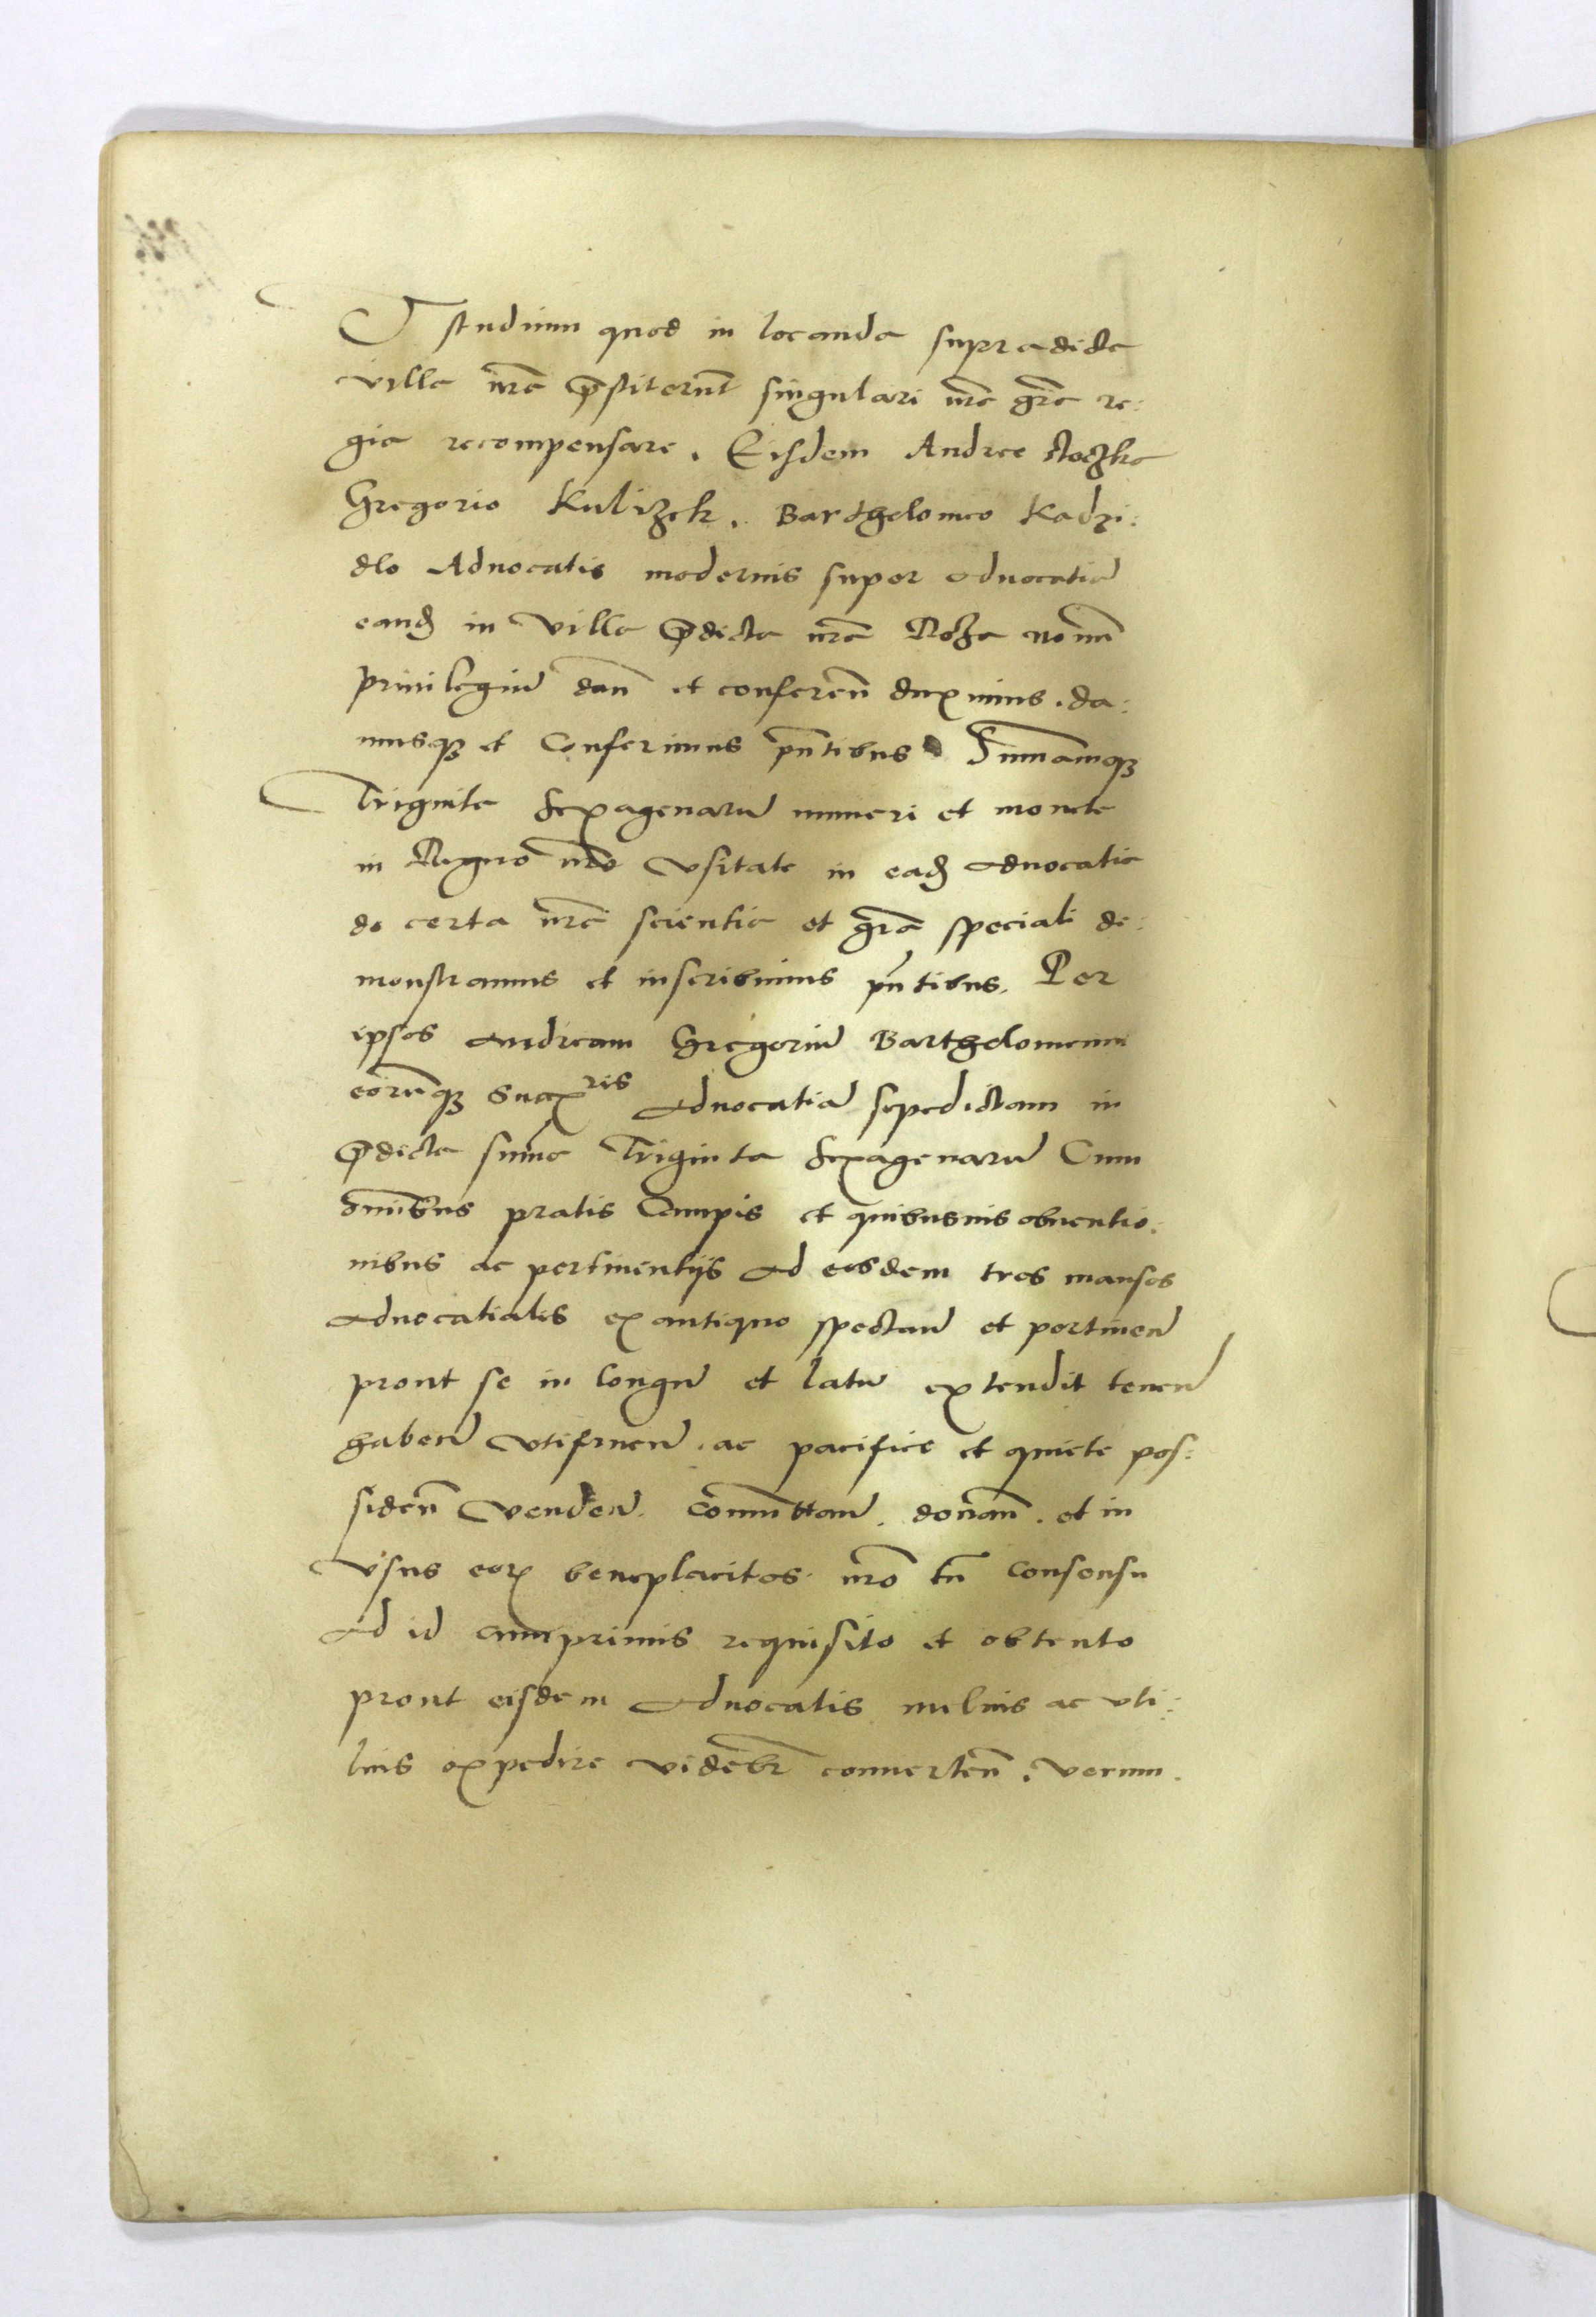 Et studium quod in locanda supradicta
villa nr̃a p̱stiterunt̃ singulari nr̃a gr̃a re:
gia recompensare. Eisdem Andree
Gregorio Kulizek. Bartholomeo Kadzi:
dlo Aduocatis modernis super aduocatiã
eand̃ in Villa p̱dicta nr̃a Roza nouũ
priuilegiũ dañ et confereñ duximus. da:
musq3 et Conferimus pñtibus Sum̃amq3
Triginta sexagenarũ numeri et monete
in Regno nr̃o vsitate in ead̃ aduocatia
de certa nr̃a scientia et gr̃a speciali de:
monstramus et inscribimus pñtibus. Per
ipsos Andream Gregoriũ Bartholomeum
eorũq3 Sucᵣʳⁱˢ Aduocatiã sepedictam in
p̱dicta sum̃a Triginta sexagenarũ Cum
om̃ibus pratis Campis et quibusuis obuentio:
nibus ac pertinentijs ad eosdem tres mansos
aduocatialis ex antiquo spectañ et pertineñ
prout se in longũ et latũ extendit teneñ
habeñ vtifrueñ. ac pacifice et quiete pos:
sideñ Vendeñ. com̃uttañ. donañ. et in
vsus eoꝝ beneplacitos. nr̃o tñ consensu
ad id cumprimis requisito et obtento
prout eisdem aduocatis melius ac vti:
lius expedire videbr̃ conuerteñ. Verum.